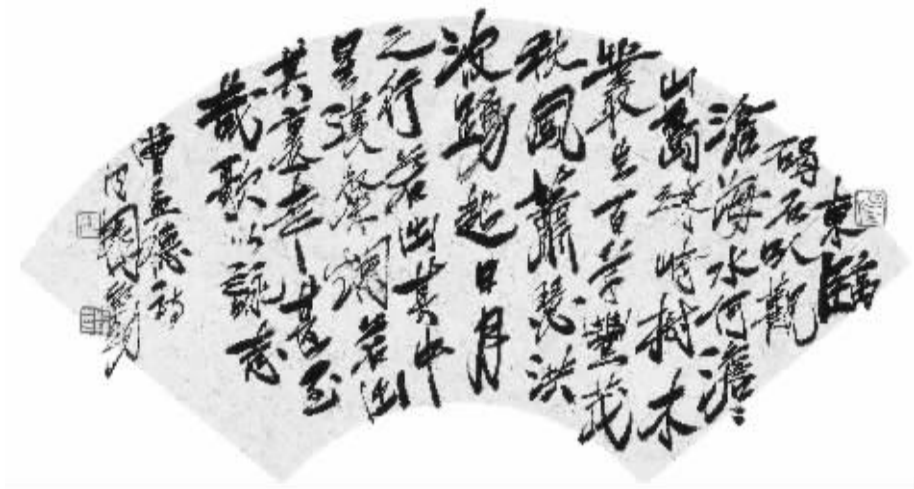 東臨
碣石以觀
滄海水何澹〻
山島竦峙樹木
叢生百草豐茂
秋風蕭瑟洪
波踴起日月
之行若出其中
星漢燦爛若出
其裏幸甚至
哉歌以詠志
曹孟德詩